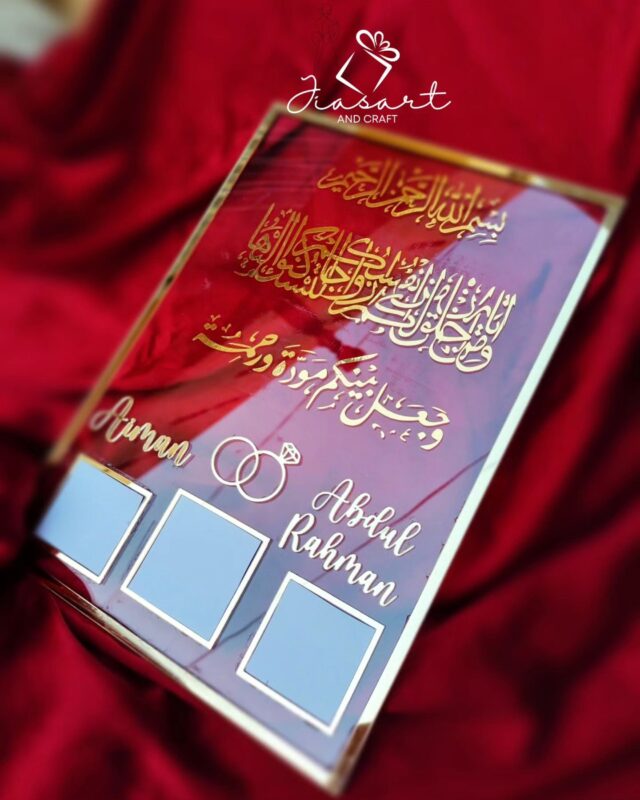 Jiasart
AND CRAFT
بسم الله الرحمن الرحيم
ومن آياته أن خلق لكم من أنفسكم أزواجا لتسكنوا إليها
وجعل بينكم مودّة ورحمة
Aiman
Abdul
Rahman